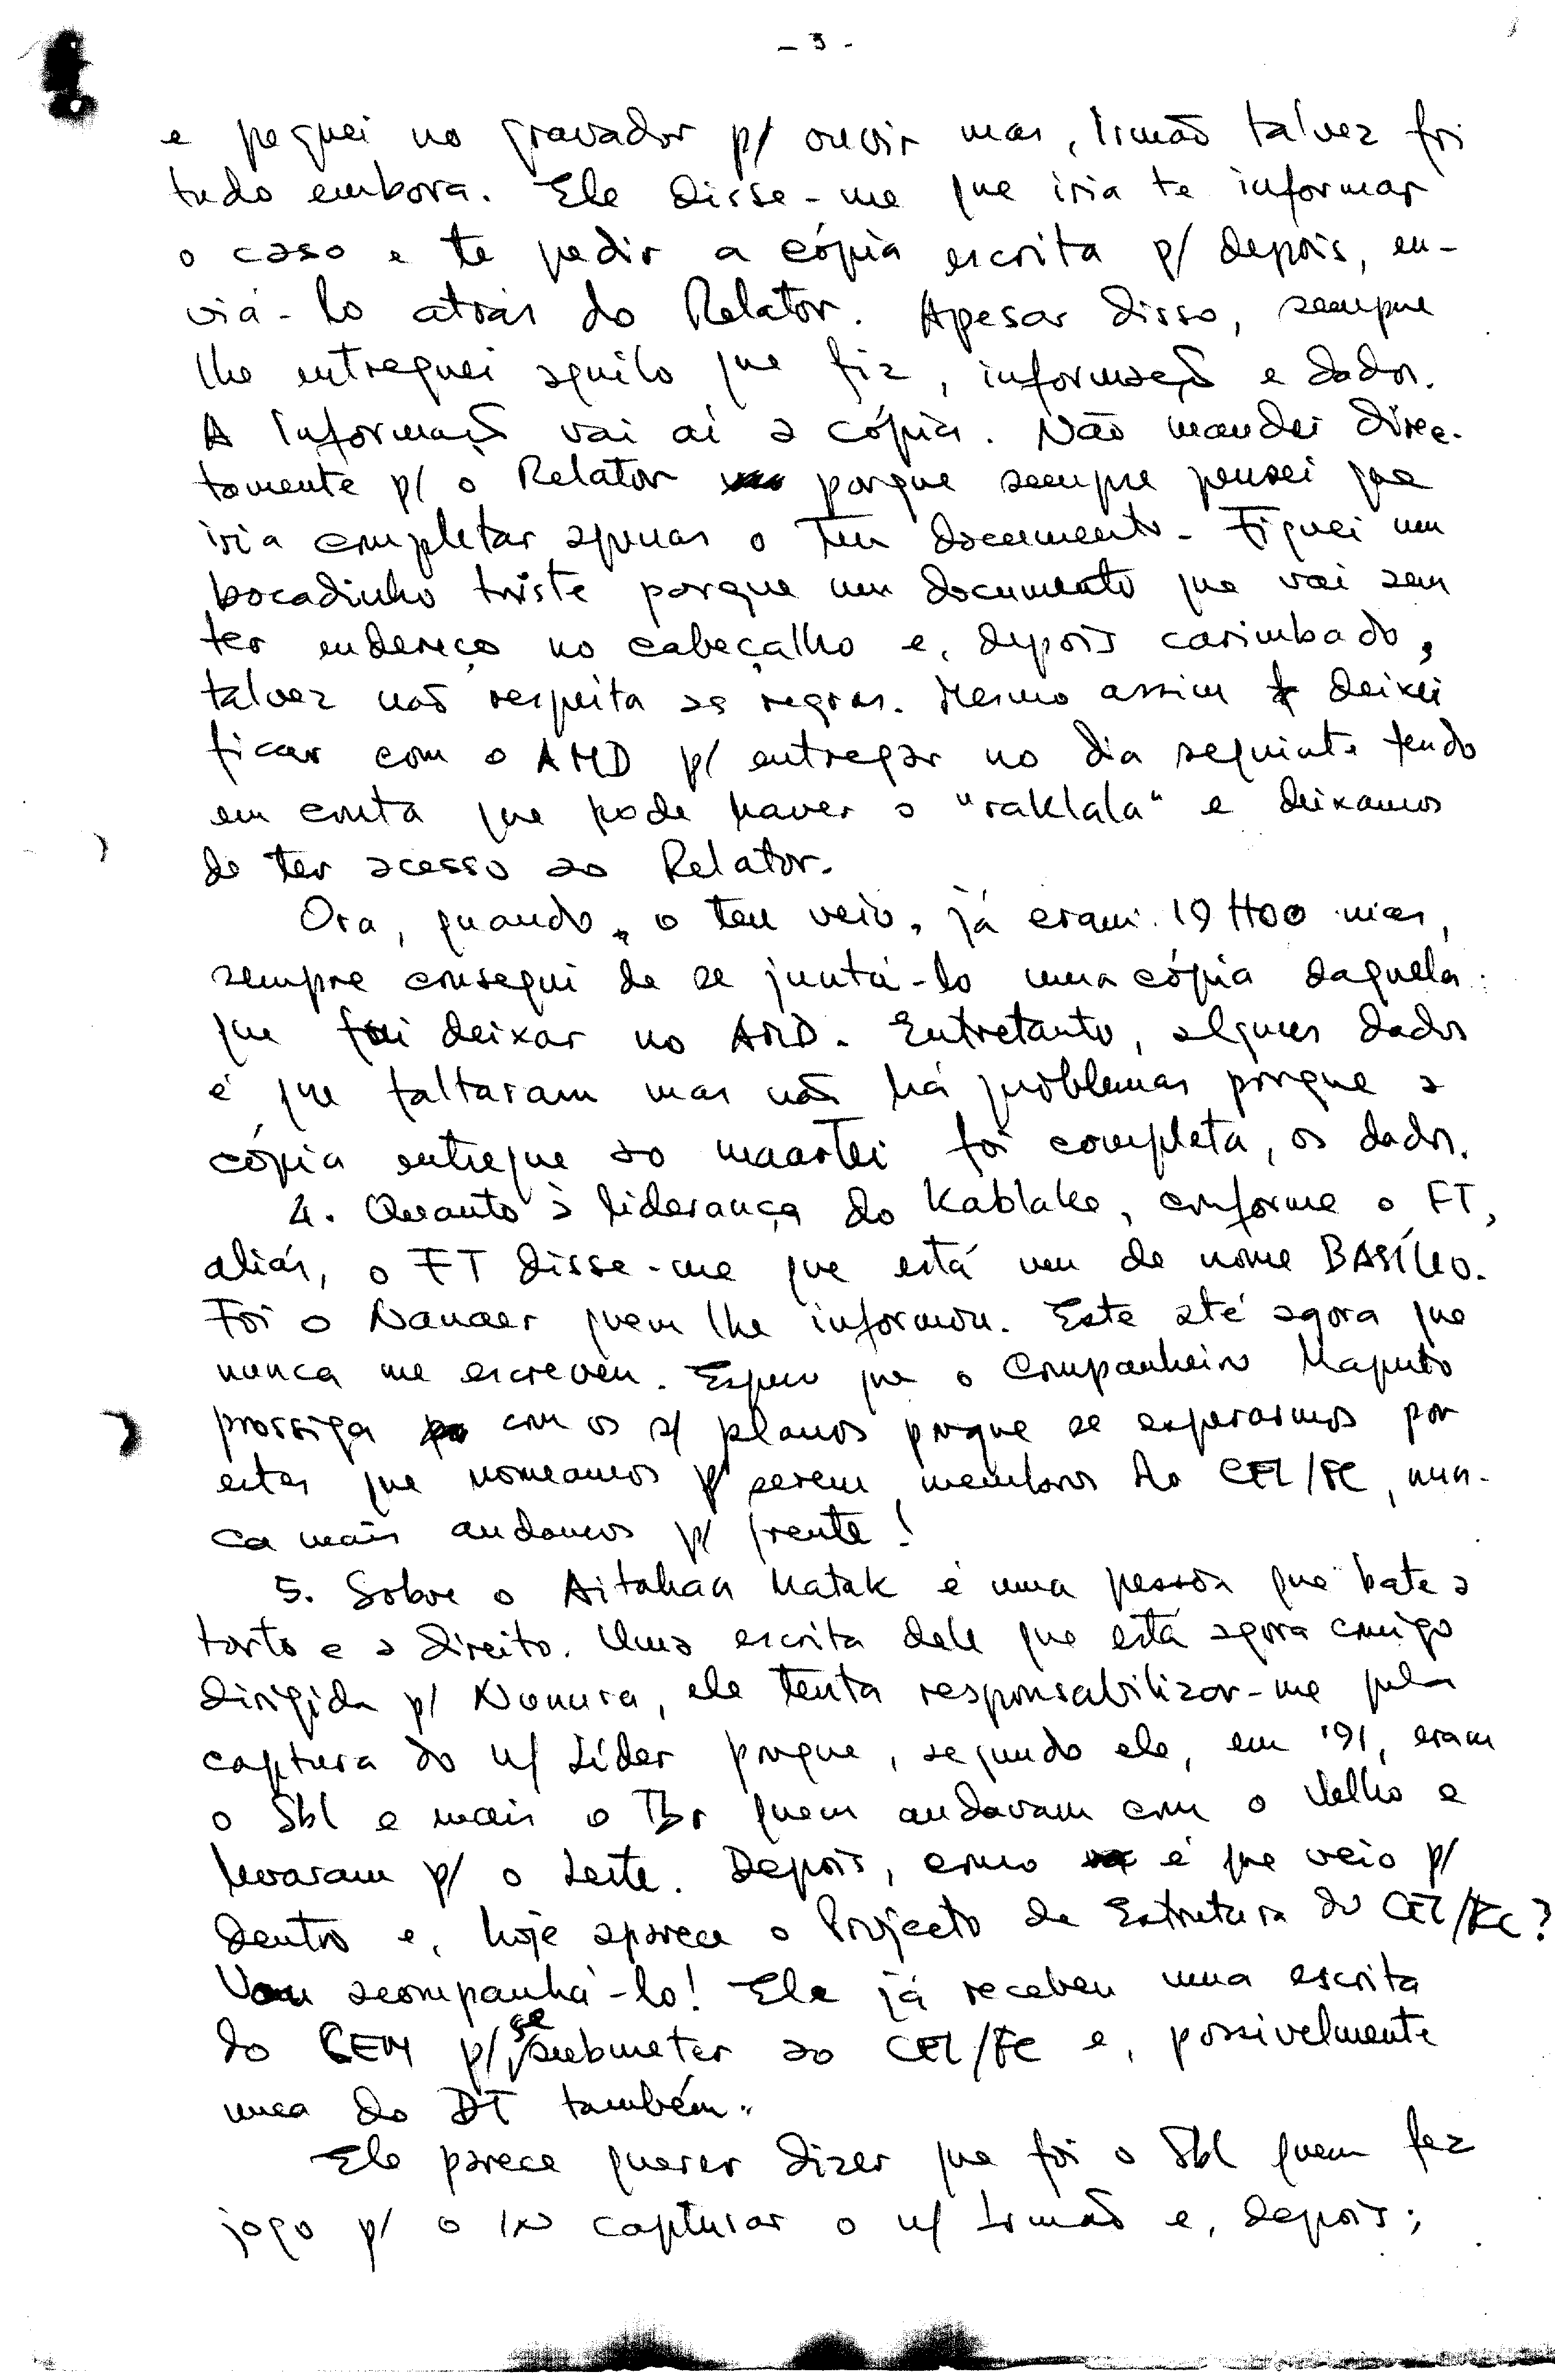 - 3 -
e peguei no gravador p/ ouvir mas, Irmão talvez foi
tudo embora. Ele disse-me que iria te informar
o caso e te pedir a cópia escrita p/ depois, en-
viá-lo atrás do Relator. Apesar disso, sempre
lhe entreguei aquilo que fiz, informação e dados.
A informação vai aí a cópia. Não mandei direc-
tamente p/ o Relator porque sempre pensei que
iria completar apenas o teu documento. Fiquei um
bocadinho triste porque um documento que vai sem
ter endereço no cabeçalho e, depois carimbado,
talvez não respeita as regras. Mesmo assim deixei
ficar com o AMD p/ entregar no dia seguinte tendo
em conta que pode haver o "raklala" e deixamos
de ter acesso ao Relator.
Ora, quando o teu veio, já eram 19H00 mas,
sempre consegui de se juntá-lo uma cópia daquela
que fui deixar no AMD. Entretanto, alguns dados
é que faltaram mas não há problemas porque a
cópia entregue ao maartei foi completa, os dados.
4. Quanto à liderança do Kablake, conforme o FT,
aliás, o FT disse-me que está um de nome BASÍLIO.
Foi o Nanaer quem lhe informou. Este até agora que
nunca me escreveu. Espero que o Companheiro Maputo
prossiga com os s/ planos porque se esperarmos por
estes que nomeamos p/ serem membros do CEL/FC, nun-
ca mais andamos p/ frente!
5. Sobre o Aitahan Matak é uma pessoa que bate a
torto e a direito. Uma escrita dele que está agora comigo
dirigida p/ Nonura, ele tenta responsabilizar-me pela
captura do n/ Líder porque, segundo ele, em '91, eram
o Sbl e mais o Tbr quem andavam com o Velho e
levaram p/ o Leste. Depois, como é que veio p/
dentro e, hoje aparece o Projecto de Estrutura do CEL/FC?
Vou acompanhá-lo! Ele já recebeu uma escrita
do CEM p/ se submeter ao CEL/FC e, possivelmente
uma do DT também.
Ele parece querer dizer que foi o Sbl quem fez
jogo p/ o IN capturar o n/ Irmão e, depois;